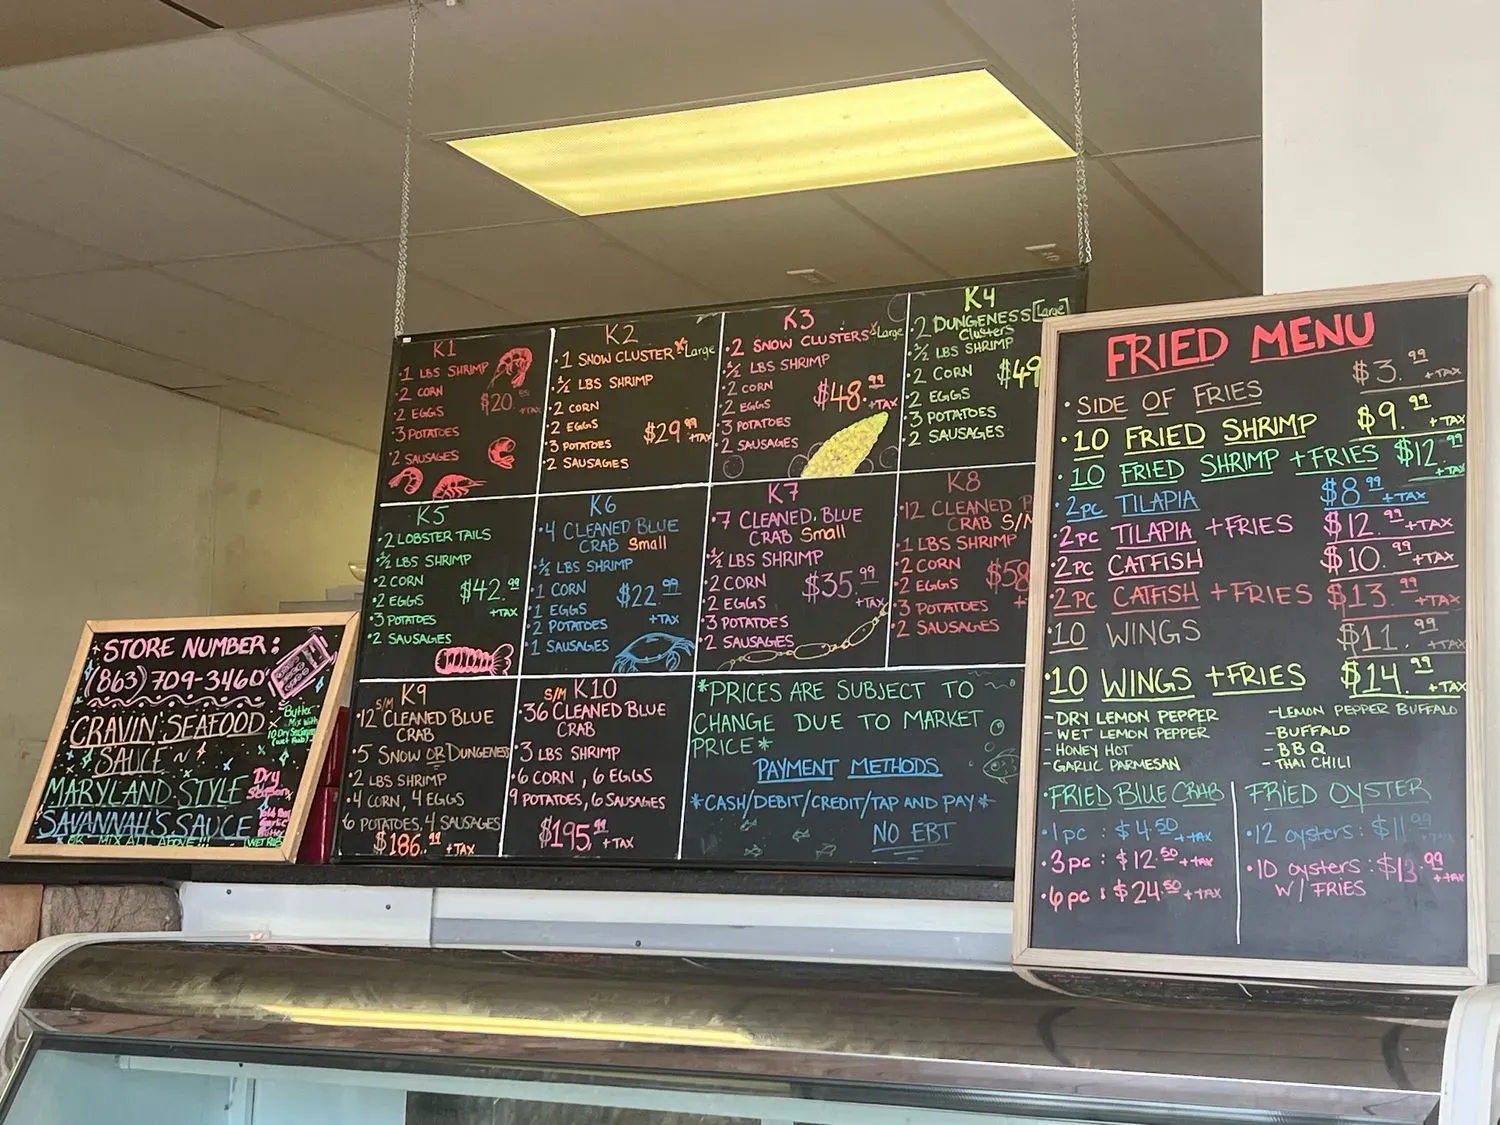 STORE NUMBER:
(863) 709-3460
CRAVIN' SEAFOOD
SAUCE ~
MARYLAND STYLE
SAVANNAH'S SAUCE
OR MIX ALL ABOVE!!!
Butter
Mix with
10 Dry Seasonings
Dry
Garlic
Butter
K1
·1 LBS SHRIMP
·2 CORN
·2 EGGS
$20. +TAX
·3 POTATOES
·2 SAUSAGES
K2
·1 SNOW CLUSTER *Large
·½ LBS SHRIMP
·2 CORN
·2 EGGS
$29.99 +TAX
·3 POTATOES
·2 SAUSAGES
K3
·2 SNOW CLUSTERS *Large
·½ LBS SHRIMP
·2 CORN
$48.99 +TAX
·2 EGGS
·3 POTATOES
·2 SAUSAGES
K4
·2 DUNGENESS [Large]
Clusters
·½ LBS SHRIMP
·2 CORN
$49
·2 EGGS
·3 POTATOES
·2 SAUSAGES
K5
·2 LOBSTER TAILS
·½ LBS SHRIMP
·2 CORN
$42.99 +TAX
·2 EGGS
·3 POTATOES
·2 SAUSAGES
K6
·4 CLEANED BLUE
CRAB Small
·½ LBS SHRIMP
·1 CORN
$22.99 +TAX
·1 EGGS
·2 POTATOES
·1 SAUSAGES
K7
·7 CLEANED BLUE
CRAB Small
·½ LBS SHRIMP
·2 CORN
$35.99 +TAX
·2 EGGS
·3 POTATOES
·2 SAUSAGES
K8
·12 CLEANED
CRAB S/M
·1 LBS SHRIMP
·2 CORN
$58
·2 EGGS
·3 POTATOES
·2 SAUSAGES
K9
S/M
·12 CLEANED BLUE
CRAB
·5 SNOW OR DUNGENESS
·2 LBS SHRIMP
·4 CORN, 4 EGGS
·6 POTATOES, 4 SAUSAGES
$186.99 +TAX
S/M K10
·36 CLEANED BLUE
CRAB
·3 LBS SHRIMP
·6 CORN, 6 EGGS
9 POTATOES, 6 SAUSAGES
$195.99 +TAX
*PRICES ARE SUBJECT TO
CHANGE DUE TO MARKET
PRICE*
PAYMENT METHODS
*CASH/DEBIT/CREDIT/TAP AND PAY*
NO EBT
FRIED MENU
·SIDE OF FRIES $3.99 +TAX
·10 FRIED SHRIMP $9.99 +TAX
·10 FRIED SHRIMP +FRIES $12.99 +TAX
·2PC TILAPIA $8.99 +TAX
·2PC TILAPIA +FRIES $12.99 +TAX
·2PC CATFISH $10.99 +TAX
·2PC CATFISH +FRIES $13.99 +TAX
·10 WINGS $11.99 +TAX
·10 WINGS +FRIES $14.99 +TAX
-DRY LEMON PEPPER
-WET LEMON PEPPER
-HONEY HOT
-GARLIC PARMESAN
-LEMON PEPPER BUFFALO
-BUFFALO
-BBQ
-THAI CHILI
FRIED BLUE CRAB
·1pc : $4.50 +TAX
·3pc : $12.50 +TAX
·6pc : $24.50 +TAX
FRIED OYSTER
·12 oysters: $11.99 +TAX
·10 oysters: $13.99 +TAX
W/ FRIES